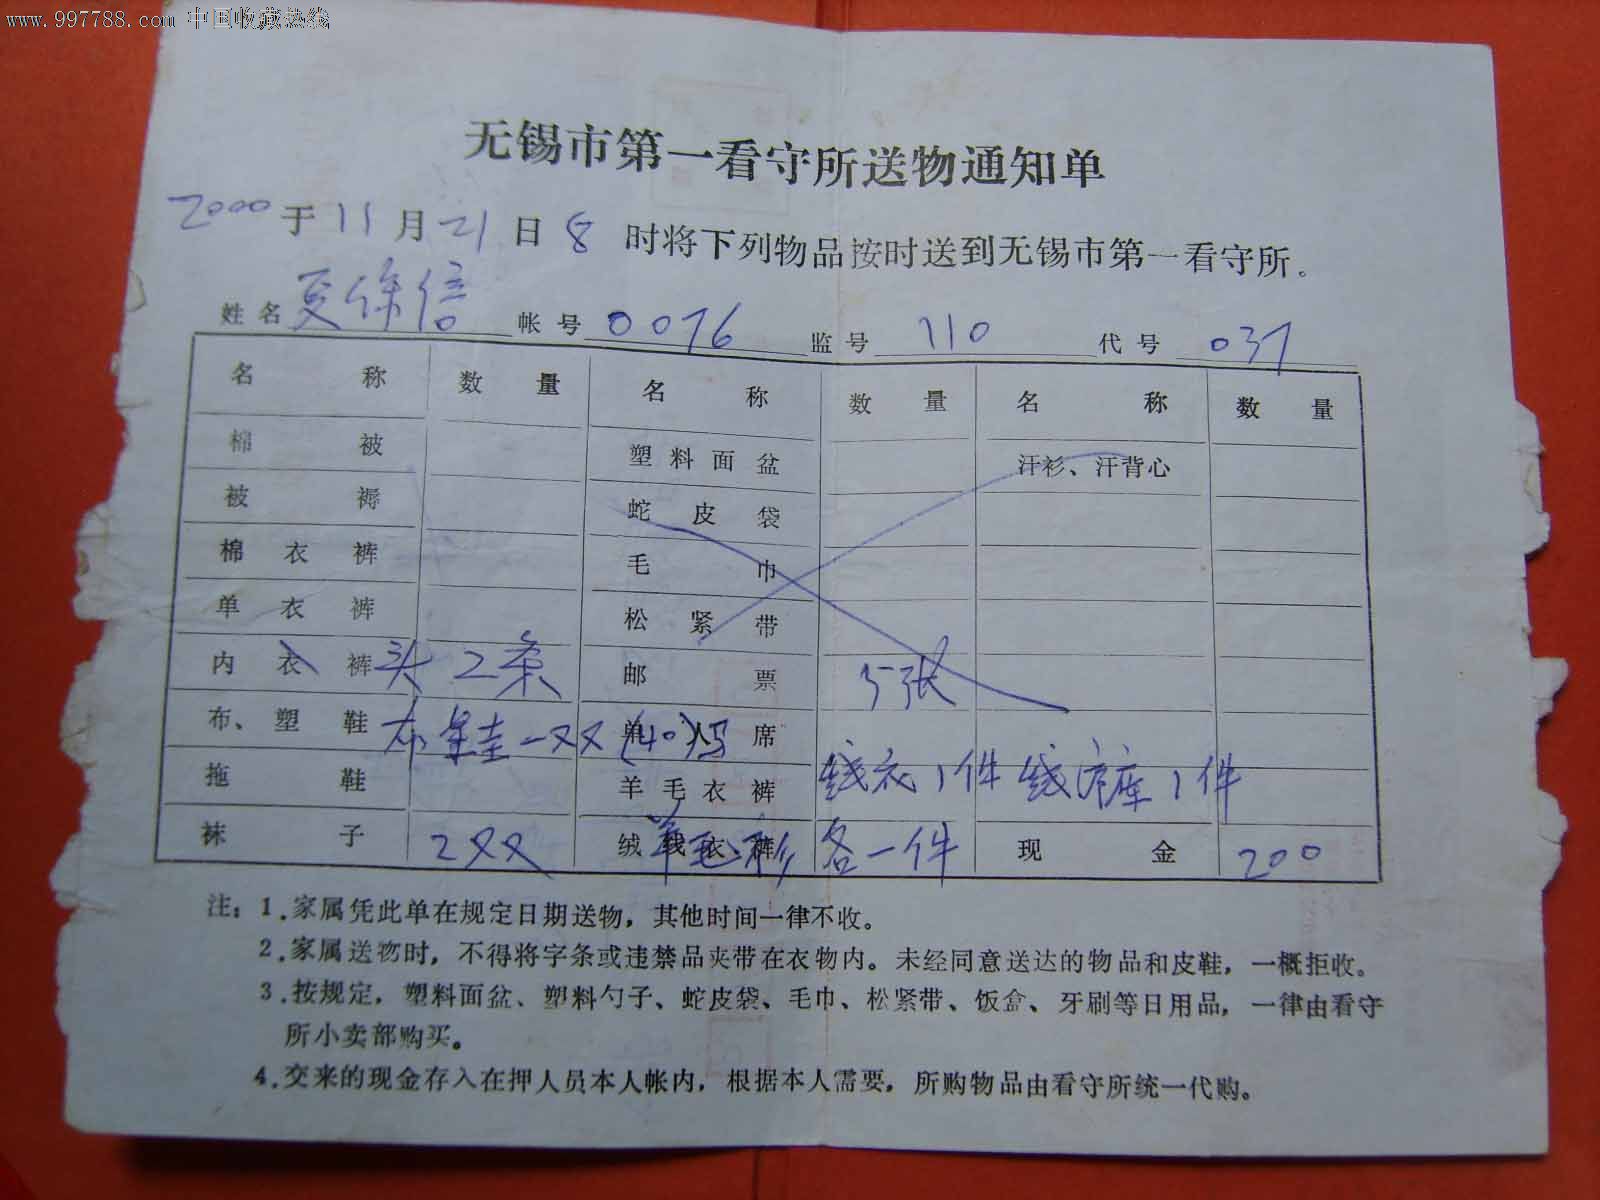 www.997788.com 中国收藏热线
无锡市第一看守所送物通知单
2000 于 11 月 21 日 8 时将下列物品按时送到无锡市第一看守所。
姓名 夏 倍 帐号 0076 监号 110 代号 037
名称 数量 名称 数量 名称 数量
棉被 塑料面盆 汗衫、汗背心
被褥 蛇皮袋
棉衣裤 毛巾
单衣裤 松紧带
内衣裤 头 2条 邮票 5张
布、塑鞋 布鞋一双(40)码 单人席
拖鞋 羊毛衣裤 线衣1件 线裤1件
袜子 2双 绒线衣裤 羊毛衫 各一件 现金 200
注:1.家属凭此单在规定日期送物,其他时间一律不收。
2.家属送物时,不得将字条或违禁品夹带在衣物内。未经同意送达的物品和皮鞋,一概拒收。
3.按规定,塑料面盆、塑料勺子、蛇皮袋、毛巾、松紧带、饭盒、牙刷等日用品,一律由看守
所小卖部购买。
4.交来的现金存入在押人员本人帐内,根据本人需要,所购物品由看守所统一代购。